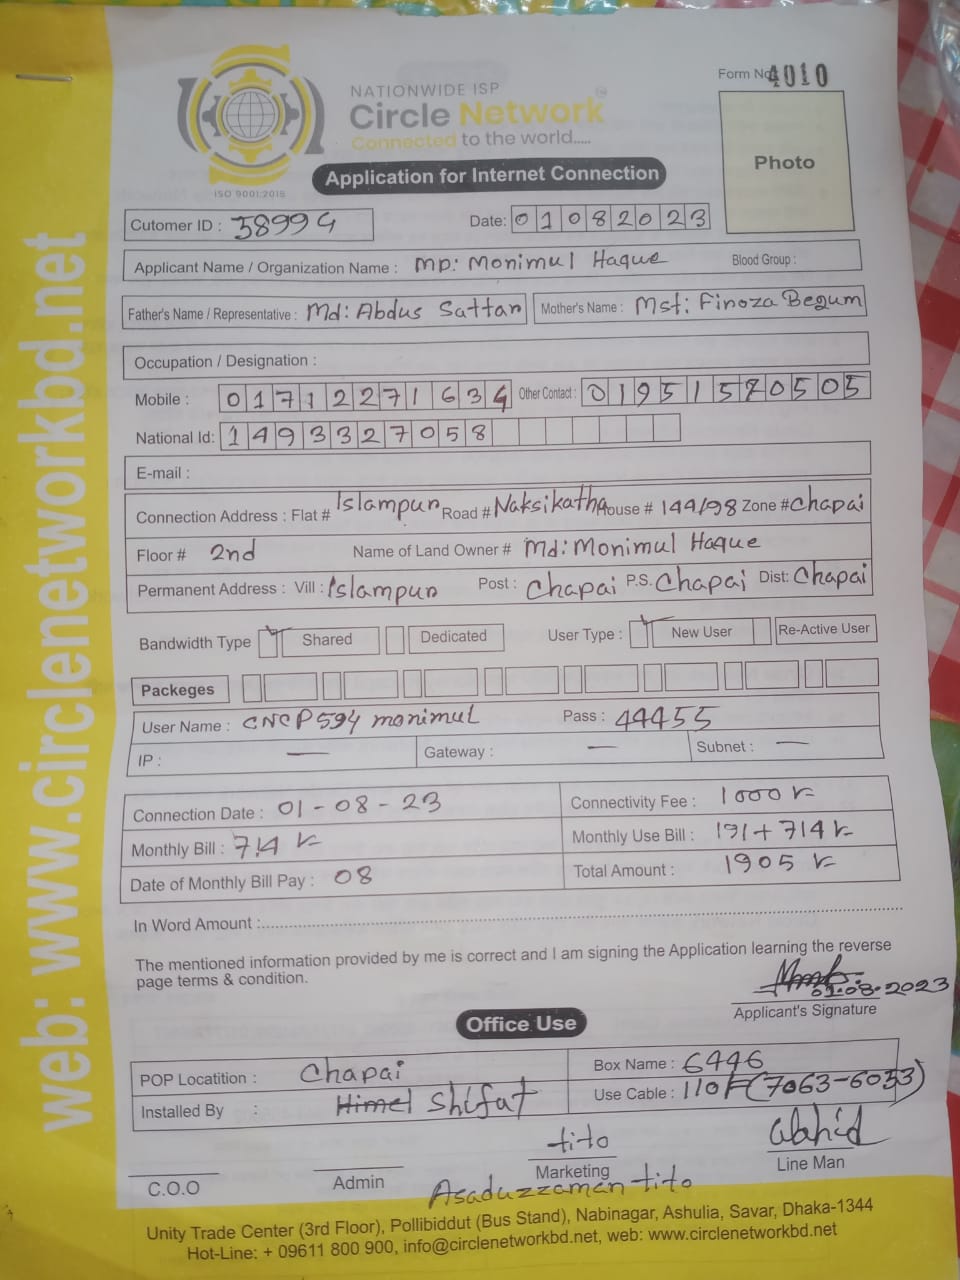 web: www.circlenetworkbd.net
NATIONWIDE ISP
Circle Network
Connected to the world.....
ISO 9001:2015
Form No 4010
Photo
Application for Internet Connection
Cutomer ID : 38994
Date: 01082023
Applicant Name / Organization Name : MD: Monimul Haque Blood Group :
Father's Name / Representative : Md: Abdus Sattan Mother's Name : Mst: Finoza Begum
Occupation / Designation :
Mobile : 01712271634 Other Contact : 01951580505
National Id: 1493327058
E-mail :
Connection Address : Flat # Islampun Road # Naksikatha House # 144/98 Zone # Chapai
Floor # 2nd Name of Land Owner # Md: Monimul Haque
Permanent Address : Vill : Islampun Post : Chapai P.S. Chapai Dist: Chapai
Bandwidth Type Shared Dedicated User Type : New User Re-Active User
Packeges
User Name : CNCP594 monimul Pass : 44455
IP : — Gateway : — Subnet : —
Connection Date : 01-08-23 Connectivity Fee : 1000
Monthly Bill : 714 Monthly Use Bill : 191+714
Date of Monthly Bill Pay : 08 Total Amount : 1905
In Word Amount :
The mentioned information provided by me is correct and I am signing the Application learning the reverse
page terms & condition.
01.08.2023
Applicant's Signature
Office Use
POP Locatition : Chapai Box Name : 6446
Installed By : Himel Shifat Use Cable : 110F (7063-6033)
tito Wahid
C.O.O Admin Marketing Line Man
Asaduzzaman tito
Unity Trade Center (3rd Floor), Pollibiddut (Bus Stand), Nabinagar, Ashulia, Savar, Dhaka-1344
Hot-Line: + 09611 800 900, info@circlenetworkbd.net, web: www.circlenetworkbd.net